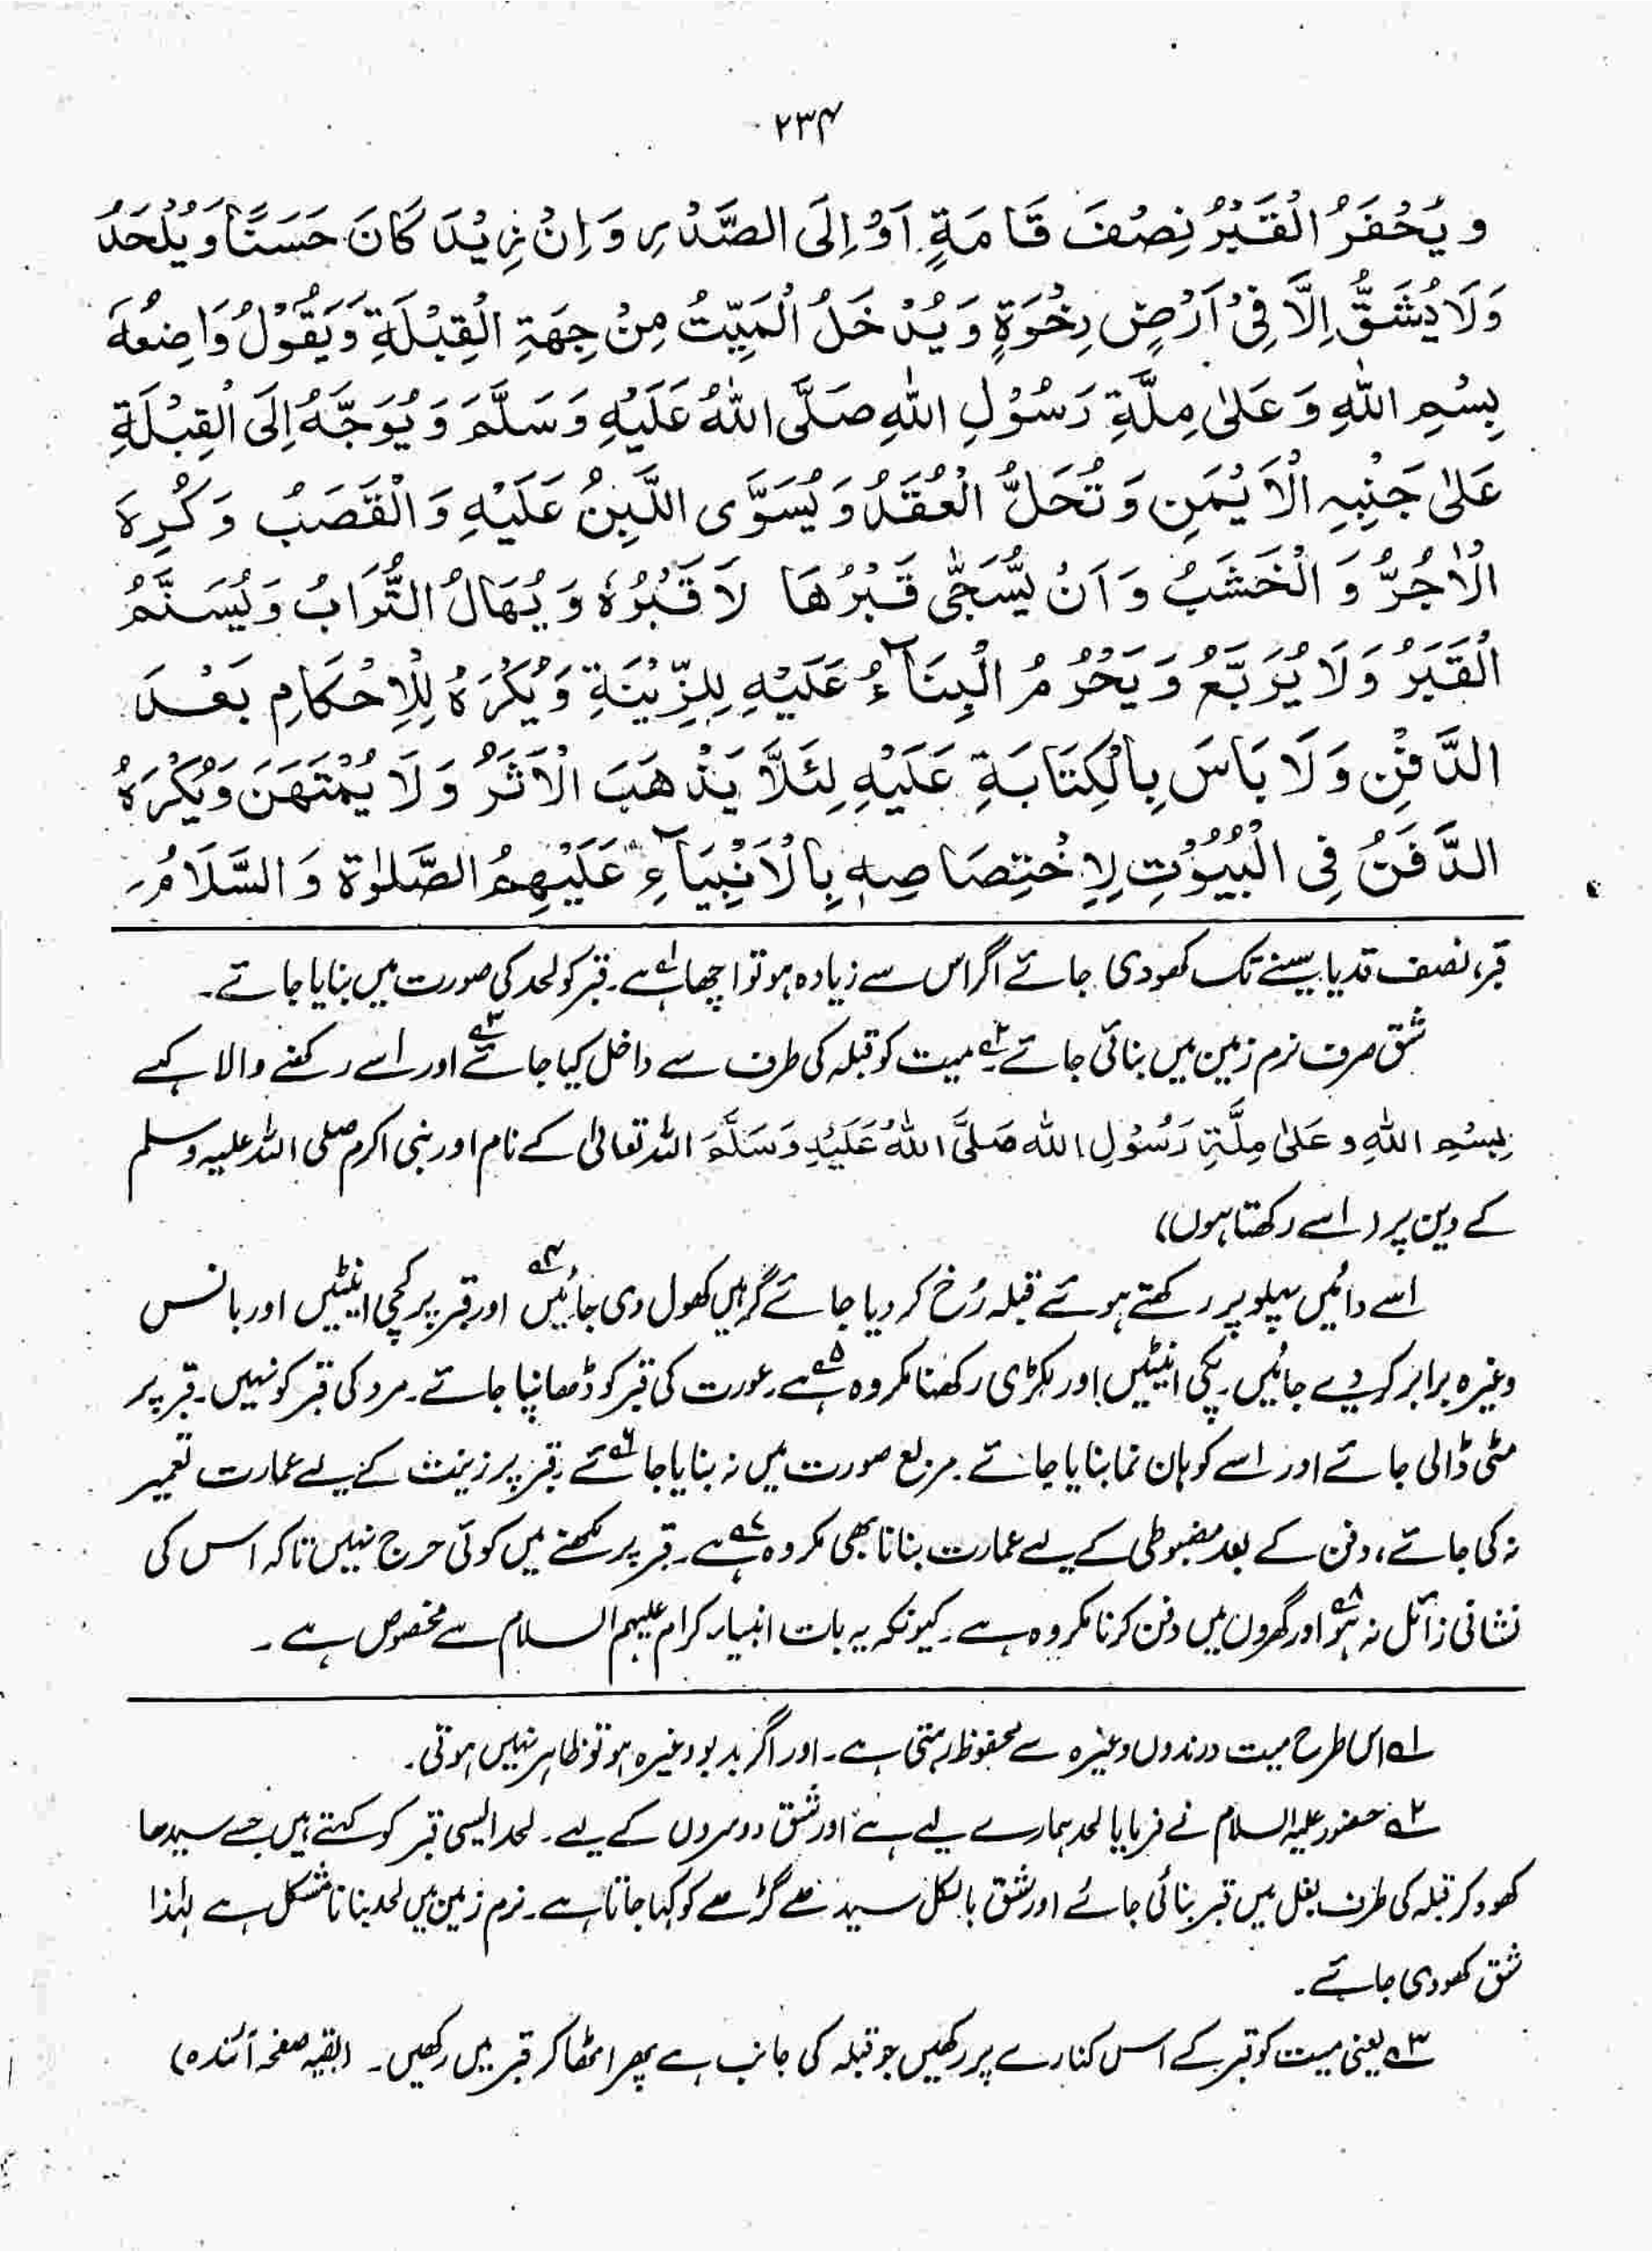 ۲۳۴
وَيُحْفَرُ الْقَبْرُ نِصْفَ قَامَةٍ اَوْ اِلَى الصَّدْرِ وَاِنْ زِيْدَ كَانَ حَسَنًا وَيُلْحَدُ
وَلَا يُشَقُّ اِلَّا فِىْ اَرْضٍ رِخْوَةٍ وَيُدْخَلُ الْمَيِّتُ مِنْ جِهَةِ الْقِبْلَةِ وَيَقُوْلُ وَاضِعُهٗ
بِسْمِ اللهِ وَعَلىٰ مِلَّةِ رَسُوْلِ اللهِ صَلَّى اللهُ عَلَيْهِ وَسَلَّمَ وَيُوَجَّهُ اِلَى الْقِبْلَةِ
عَلىٰ جَنْبِهِ الْاَيْمَنِ وَتُحَلُّ الْعُقَدُ وَيُسَوَّى اللَّبِنُ عَلَيْهِ وَالْقَصَبُ وَكُرِهَ
الْاٰجُرُّ وَالْخَشَبُ وَاَنْ يُّسَجّٰى قَبْرُهَا لَا قَبْرُهٗ وَيُهَالُ التُّرَابُ وَيُسَنَّمُ
الْقَبَرُ وَلَا يُرَبَّعُ وَيَحْرُمُ الْبِنَآءُ عَلَيْهِ لِلزِّيْنَةِ وَيُكْرَهُ لِلْاِحْكَامِ بَعْدَ
الدَّفْنِ وَلَا بَاسَ بِالْكِتَابَةِ عَلَيْهِ لِئَلَّا يَذْهَبَ الْاَثَرُ وَلَا يُمْتَهَنَ وَيُكْرَهُ
الدَّفَنُ فِى الْبُيُوْتِ لِاِخْتِصَاصِهٖ بِالْاَنْبِيَآءِ عَلَيْهِمُ الصَّلٰوةُ وَالسَّلَامُ۔
قبر، نصف قد یا سینے تک کھودی جائے اگر اس سے زیادہ ہو تو اچھا ہے۱۔ قبر کو لحد کی صورت میں بنایا جائے۔
شق صرف نرم زمین میں بنائی جائے۲۔ میت کو قبلہ کی طرف سے داخل کیا جائے۳ اور اسے رکھنے والا کہے
بِسْمِ اللهِ وعَلىٰ مِلَّةِ رَسُوْلِ الله صَلَّى اللهُ عَلَيْهِ وَسَلَّمَ اللہ تعالیٰ کے نام اور نبی اکرم صلی اللہ علیہ وسلم
کے دین پر (اسے رکھتا ہوں)
اسے دائیں پہلو پر رکھتے ہوئے قبلہ رُخ کر دیا جائے گرہیں کھول دی جائیں۴ اور قبر پر کچی اینٹیں اور بانس
وغیرہ برابر کر دیے جائیں۔ پکی اینٹیں اور لکڑی رکھنا مکروہ ہے۵۔ عورت کی قبر کو ڈھانپا جائے۔ مرد کی قبر کو نہیں۔ قبر پر
مٹی ڈالی جائے اور اسے کوہان نما بنایا جائے۔ مربع صورت میں نہ بنایا جائے۶۔ قبر پر زینت کے لیے عمارت تعمیر
نہ کی جائے، دفن کے بعد مضبوطی کے لیے عمارت بنانا بھی مکروہ ہے۷۔ قبر پر لکھنے میں کوئی حرج نہیں تاکہ اس کی
نشانی زائل نہ ہو۸ اور گھروں میں دفن کرنا مکروہ ہے۔ کیونکہ یہ بات انبیاء کرام علیہم السلام سے مخصوص ہے۔
۱؎ اس طرح میت درندوں وغیرہ سے محفوظ رہتی ہے۔ اور اگر بدبو وغیرہ ہو تو ظاہر نہیں ہوتی۔
۲؎ حضور علیہ السلام نے فرمایا لحد ہمارے لیے ہے اور شق دوسروں کے لیے۔ لحد ایسی قبر کو کہتے ہیں جسے سیدھا
کھود کر قبلہ کی طرف بغل میں قبر بنائی جائے اور شق بالکل سیدھے گڑھے کو کہا جاتا ہے۔ نرم زمین میں لحد بنانا مشکل ہے لہٰذا
شق کھودی جائے۔
۳؎ یعنی میت کو قبر کے اس کنارے پر رکھیں جو قبلہ کی جانب ہے پھر اٹھا کر قبر میں رکھیں۔ (بقیہ صفحہ آئندہ)